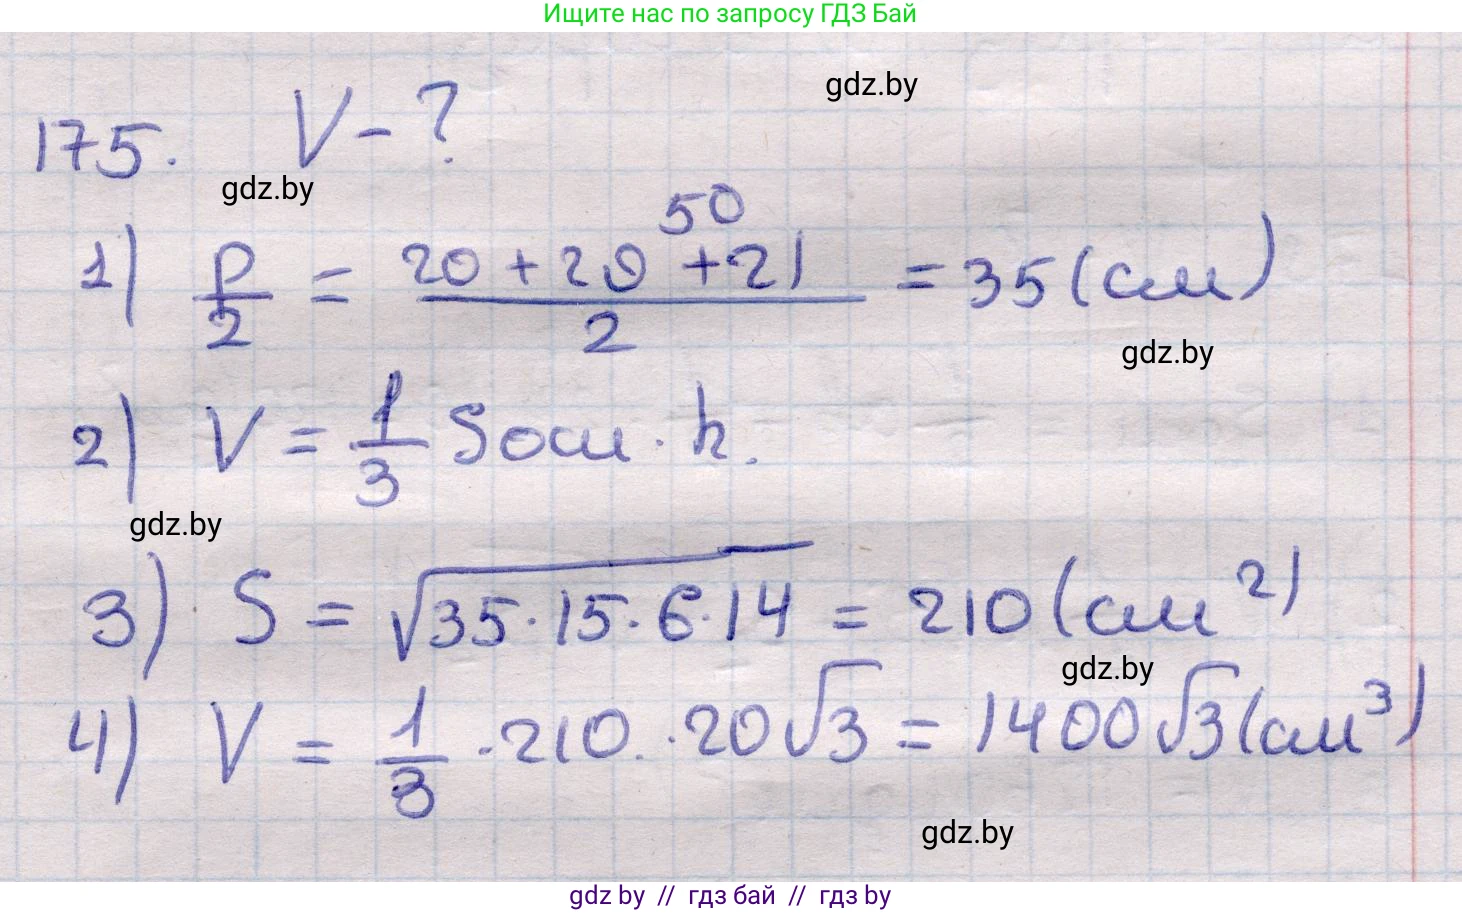 Ищите нас по запросу ГДЗ Бай
gdz.by
175. V - ?
gdz.by
50
1) p/2 = (20 + 29 + 21)/2 = 35 (см)
gdz.by
2) V = 1/3 Sосн · h.
gdz.by
3) S = √35·15·6·14 = 210 (см²)
gdz.by
4) V = 1/3 · 210 · 20√3 = 1400√3 (см³)
gdz.by
gdz by // гдз бай // гдз by